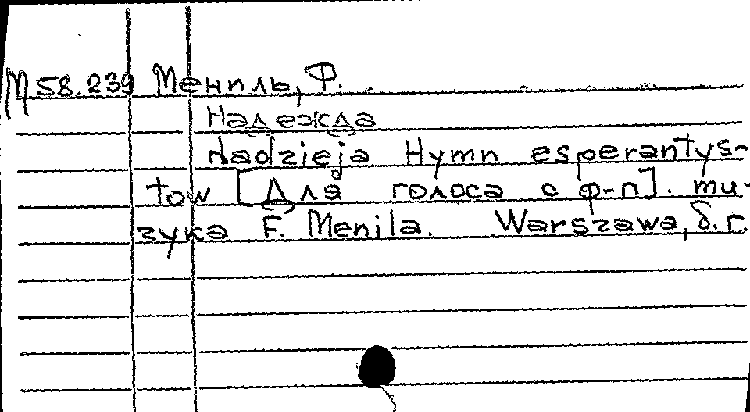 M 58.239 Мениль, Ф.
Надежда
Nadzieja Hymn esperantys-
tow [Для голоса с ф-п]. mu-
зyka F. Menila. Warszawa, б.г.